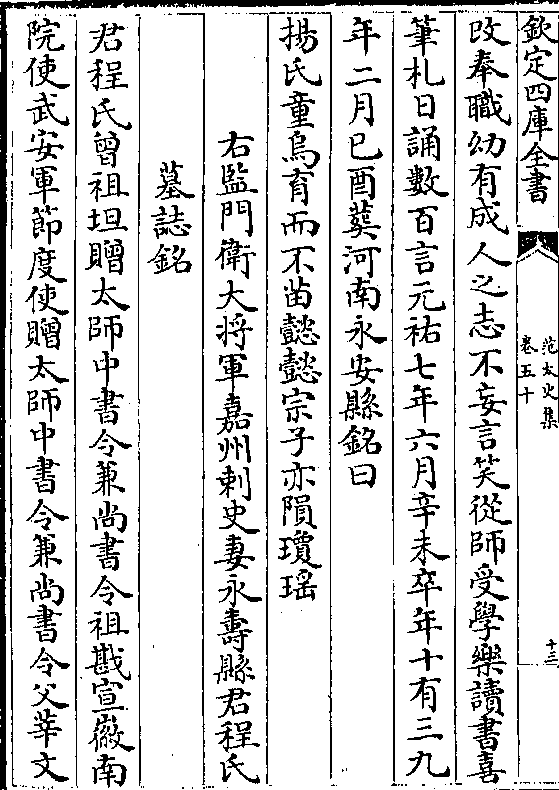 欽定四庫全書
范太史集
卷五十
十三
改奉職幼有成人之志不妄言笑從師受學樂讀書喜
筆札日誦數百言元祐七年六月辛未卒年十有三九
年二月已酉葬河南永安縣銘曰
揚氏童烏育而不苗懿懿宗子亦隕瓊瑤
右監門衛大將軍嘉州刺史妻永壽縣君程氏
墓誌銘
君程氏曾祖坦贈太師中書令兼尚書令祖戡宣徽南
院使武安軍節度使贈太師中書令兼尚書令父莘文